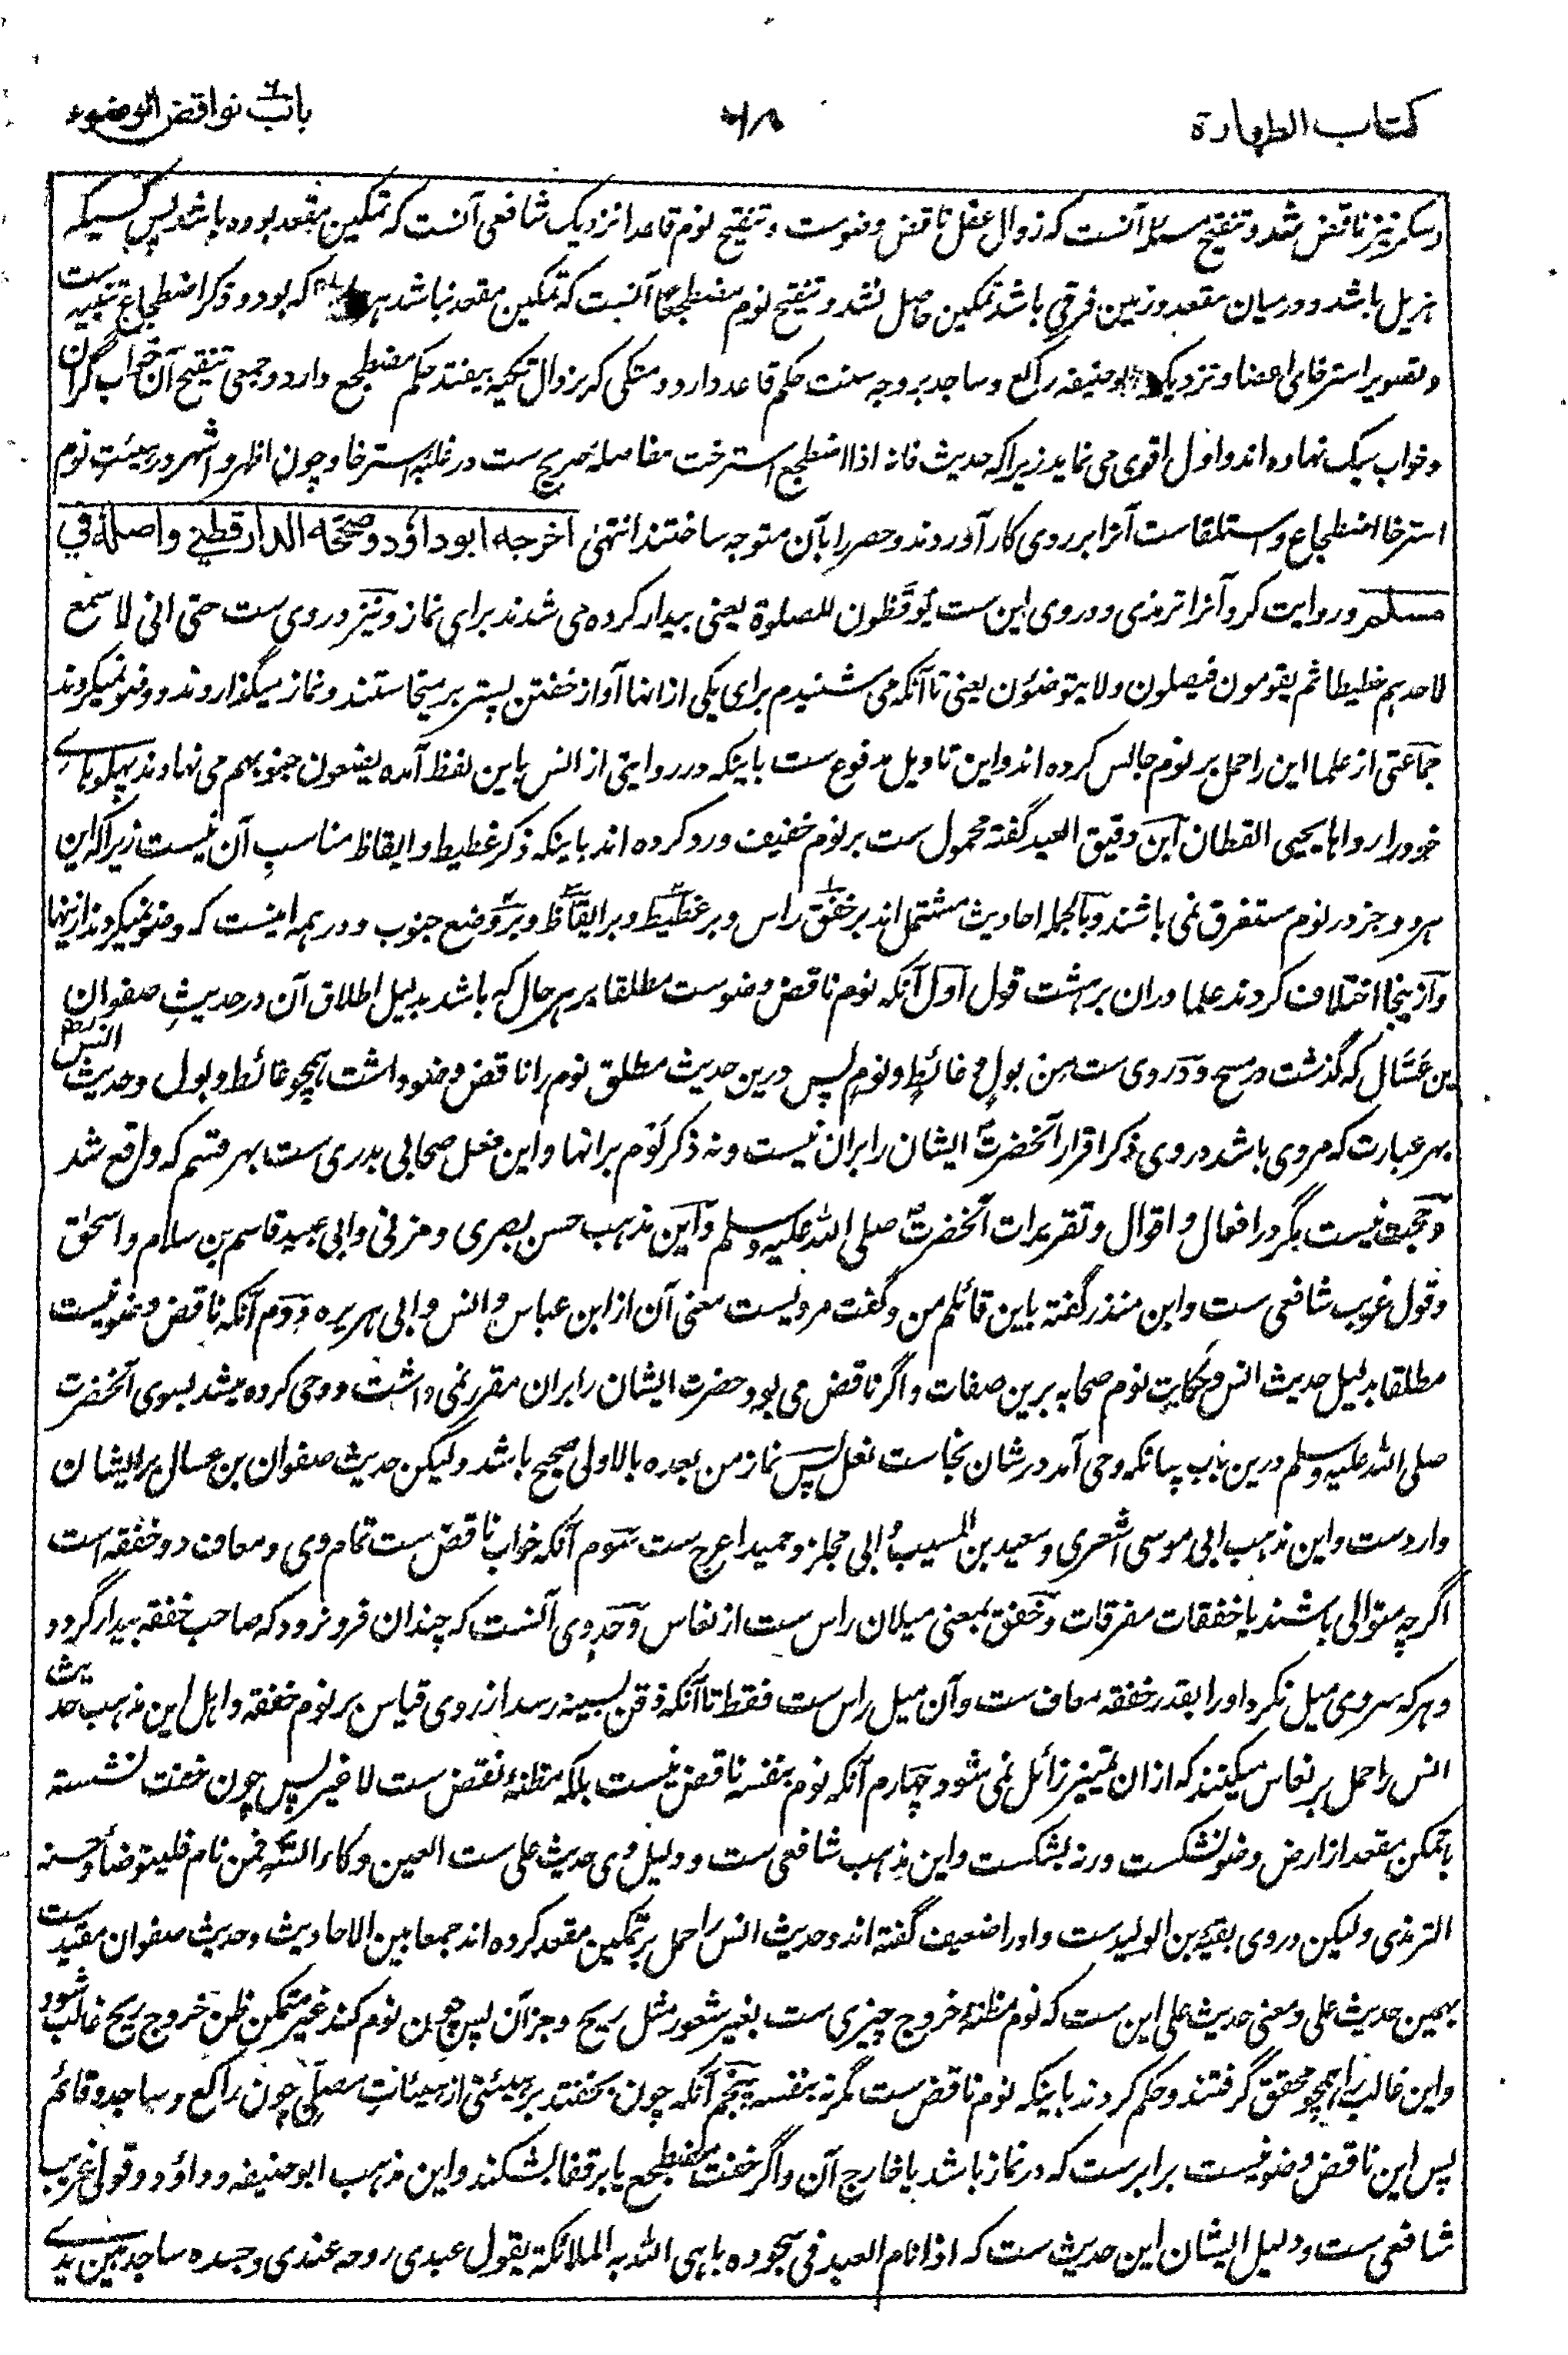 کتاب الطهارة
۶۸
باب نواقض الوضوء
وسکر نیز ناقض شد و تنقیح مسئله آنست که زوال عقل ناقض وضوست و تنقیح نوم قاعدا نزدیک شافعی آنست که تمکین مقعد بوده باشد پس کسیکه
هزیل باشد و درمیان مقعد و زمین فرقی باشد تمکین حاصل نشد و تنقیح نوم مضطجعا آنست که تمکین مقعد نباشد که بود و ذکر اضطجاع تنبیه ست
و تصویر استرخای اعضا و نزدیک ابوحنیفه راکع و ساجد بروجه سنت حکم قاعد دارد و متکی که بزوال تکیه بیفتد حکم مضطجع دارد و جمعی تنقیح آن خواب گران
و خواب سبک نهاده اند و اول اقوی می نماید زیراکه حدیث فانه اذا اضطجع استرخت مفاصله صریح ست در غلبه استرخا و چون اظهر و اشهر در هیئت نوم
استرخا اضطجاع و استلقاست آنرا بر روی کار آوردند و حصر را بآن متوجه ساختند انتهی اخرجه ابوداؤد وصححه الدارقطني واصله في
مسلم و روایت کرد آنرا ترمذی و در وی این ست یُوقَظون للصلوة یعنی بیدار کرده می شدند برای نماز و نیز در وی ست حتی انی لاسمع
لاحدهم غطیطا ثم یقومون فیصلون ولا یتوضئون یعنی تا آنکه می شنیدم برای یکی ازانها آواز خفتن پستر برمیخاستند و نماز میگذاردند و وضو نمیکردند
جماعتی از علما این را حمل بر نوم جالس کرده اند و این تاویل مدفوع ست باینکه در روایتی از انس باین لفظ آمده یضعون جنوبهم می نهادند پهلوهای
خود را رواها یحیی القطان ابن دقیق العید گفته محمول ست بر نوم خفیف و رد کرده اند باینکه ذکر غطیط و ایقاظ مناسبِ آن نیست زیراکه این
هر دو جز در نوم مستغرق نمی باشند و بالجمله احادیث مشتمل اند بر خفق راس و بر غطیط و بر ایقاظ و بر وضع جنوب و در همه اینست که وضو نمیکردند ازینها
و ازینجا اختلاف کردند علما دران بر هشت قول اول آنکه نوم ناقض وضوست مطلقا بر هرحال که باشد بدلیل اطلاق آن در حدیثِ صفوان
بن عَسّال که گذشت در مسح و در وی ست من بولٍ و غائطٍ و نومٍ پس درین حدیث مطلق نوم را ناقض وضو داشت همچو غائط و بول و حدیث انس
بهر عبارت که مروی باشد در وی ذکر اقرار آنحضرتؐ ایشان را بران نیست و نه ذکر نَوْم برانها و این فعل صحابی بدری ست بهر قسم که واقع شد
و حجت نیست مگر در افعال و اقوال و تقریرات آنحضرت صلی الله علیه وسلم و این مذهب حسن بصری و مزنی و ابی عبید قاسم بن سلام و اسحٰق
و قول غریب شافعی ست و ابن منذر گفته باین قائلم من و گفت مرویست معنی آن از ابن عباس و انس و ابی هریره دوم آنکه ناقض وضو نیست
مطلقا بدلیل حدیث انس و حکایتِ نوم صحابه برین صفات و اگر ناقض می بود حضرت ایشان را بران مقرر نمی داشت و وحی کرده میشد بسوی آنحضرت
صلی الله علیه وسلم درین باب چنانکه وحی آمد در شان نجاست نعل پس نماز من بعده بالاولی صحیح باشد ولیکن حدیث صفوان بن عسال بر ایشان
واردست و این مذهب ابی موسی اشعری و سعید بن المسیب و ابی مجلز و حمید اعرج ست سوم آنکه خواب ناقض ست تمام وی و معاف دو خفقه است
اگرچه متوالی باشند یا خفقات مفرقات و خفق بمعنی میلان راس ست از نعاس و حدِ وی آنست که چندان فرو نرود که صاحب خفقه بیدار گردد
و هرکه سر وی میل نکرد او را بقدر خفقه معاف ست و آن میل راس ست فقط تا آنکه ذقن بسینه رسد از روی قیاس بر نوم خفقه و اهل این مذهب حدیث
انس را حمل بر نعاس میکنند که ازان تمییز زائل نمی شود چهارم آنکه نوم بنفسه ناقض نیست بلکه مظنهٔ نقض ست لا غیر پس چون خفت نشسته
باتمکن مقعد از ارض وضو نشکست ورنه بشکست و این مذهب شافعی ست و دلیل وی حدیث علی ست العین وکاء السَّه فمن نام فلیتوضأ وحسنه
الترمذی ولیکن در وی بقیه بن الولیدست و او را ضعیف گفته اند و حدیث انس را حمل بر تمکین مقعد کرده اند جمعا بین الاحادیث و حدیث صفوان مقید ست
بهمین حدیث علی و معنی حدیث علی این ست که نوم مظنهٔ خروج چیزی ست بغیر شعور مثل ریح و جز آن پس چون نوم کند غیر متمکن ظن خروج ریح غالب شود
و این غالب را همچو محقق گرفتند و حکم کردند باینکه نوم ناقض ست مگر نه بنفسه پنجم آنکه چون بخفتد بر هیئتی از هیئاتِ مصلی چون راکع و ساجد و قائم
پس این ناقض وضو نیست برابرست که در نماز باشد یا خارج آن و اگر خفت مضطجع یا بر قفا بشکند و این مذهب ابوحنیفه و داؤد و قول غریب
شافعی ست و دلیل ایشان این حدیث ست که اذا نام العبد فی سجوده باهی الله به الملائکة یقول عبدی روحه عندی وجسده ساجد بین یدی